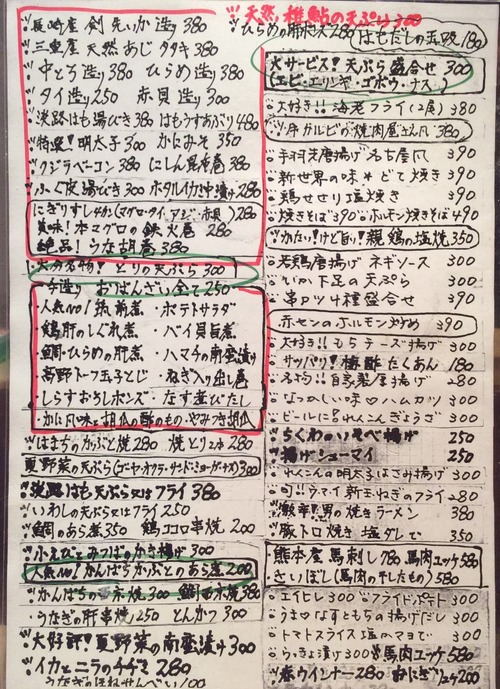 天然 稚鮎の天ぷら 300
長崎産 剣先いか造り 380
三重産 天然あじタタキ 380
中とろ造り 380 ひらめ造り 380
タイ造り 250 赤貝造り 300
淡路はも湯びき 380 はもうすあぶり 480
特選!明太子 300 かにみそ 350
クジラベーコン 380 にしん昆布巻 380
ふぐ皮湯びき 300 ホタルイカ沖漬け 280
にぎりすし4カン(マグロ・タイ・アジ・赤貝)
美味!本マグロの鉄火巻 280
絶品!うな胡巻 380
大分名物!とりの天ぷら 300
手造り おばんざい全て 250
・人気NO!筑前煮 ・ポテトサラダ
・鶏肝のしぐれ煮 ・バイ貝旨煮
・鯛・ひらめの肝煮 ・ハマチの南蛮漬け
・高野トーフ玉子とじ ・ねぎ入り出し巻
・しらすおろしポンズ ・なす煮びたし
・かに風味と胡瓜の酢のもの・やみつき胡瓜
はまちのかぶと焼 280 焼とり2本 280
夏野菜の天ぷら 300
淡路はも天ぷら又はフライ 380
いわしの天ぷら又はフライ 250
鯛のあら煮 350 鶏ココロ串焼 200
小えびとみつばのかき揚げ 300
人気NO!かんぱちかぶとのあら煮 200
うなぎの肝串焼 250 とんかつ 300
大好評!夏野菜の南蛮漬け 300
イカとニラのチヂミ 280
うなぎのほねせんべい 100
ひらめの肝ポン 280
はもだしの玉吸 180
大サービス!天ぷら盛合せ 300
大好き!!海老フライ(2尾) 380
牛カルビの焼肉屋さん風 380
手羽先唐揚げ名古屋風 390
新世界の味 どて焼き 390
鶏せせり塩焼き 390
焼きそば 390 ホルモン焼きそば 490
かたい!けど旨い!親鶏の塩焼 350
若鶏唐揚げ ネギソース 390
いか下足の天ぷら 390
串カツ4種盛合せ 390
赤センのホルモン炒め 390
大好き!!もちチーズ揚げ 390
サッパリ!梅酢たくあん 180
名物!!自家製厚揚げ 280
なつかしい味 ハムカツ 300
ビールに!!れんこんぎょうざ 300
ちくわのいそべ揚げ 250
揚げシューマイ 250
れんこんの明太子はさみ揚げ 300
旬!!ウマイ新玉ねぎのフライ 280
男の焼きラーメン 380
豚トロ焼き 塩ダレで 350
熊本産 馬刺し 780 馬肉ユッケ 580
さいぼし(馬肉の干したもの) 580
エイヒレ 300 フライドポテト 300
うま なすともちの揚げだし 300
トマトスライス塩かマヨで 300
らっきょう漬け 300 馬肉ユッケ 580
赤ウインナー 280 200